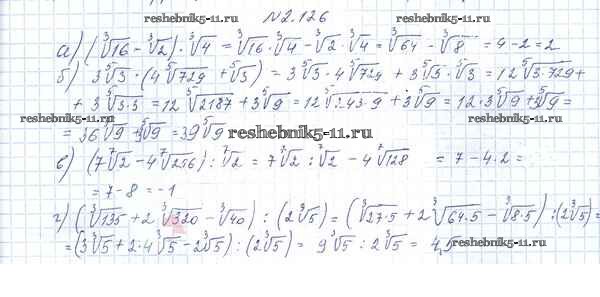 reshebnik5-11.ru №2.126 reshebnik5-11.ru
а) (∛16 - ∛2) · ∛4 = ∛16 · ∛4 - ∛2 · ∛4 = ∛64 - ∛8 = 4 - 2 = 2
б) 3⁵√3 · (4⁵√729 + ⁵√3) = 3⁵√3 · 4⁵√729 + 3⁵√3 · ⁵√3 = 12⁵√3·729 +
+ 3⁵√3·3 = 12⁵√2187 + 3⁵√9 = 12⁵√243·9 + 3⁵√9 = 12·3⁵√9 + 3⁵√9 =
reshebnik5-11.ru reshebnik5-11.ru
= 36⁵√9 + 3⁵√9 = 39⁵√9 reshebnik5-11.ru
в) (7⁷√2 - 4⁷√256) : ⁷√2 = 7⁷√2 : ⁷√2 - 4⁷√128 = 7 - 4·2 =
= 7 - 8 = -1
г) (∛135 + 2∛320 - ∛40) : (2∛5) = (∛27·5 + 2∛64·5 - ∛8·5) : (2∛5) =
= (3∛5 + 2·4∛5 - 2∛5) : (2∛5) = 9∛5 : 2∛5 = 4,5
reshebnik5-11.ru